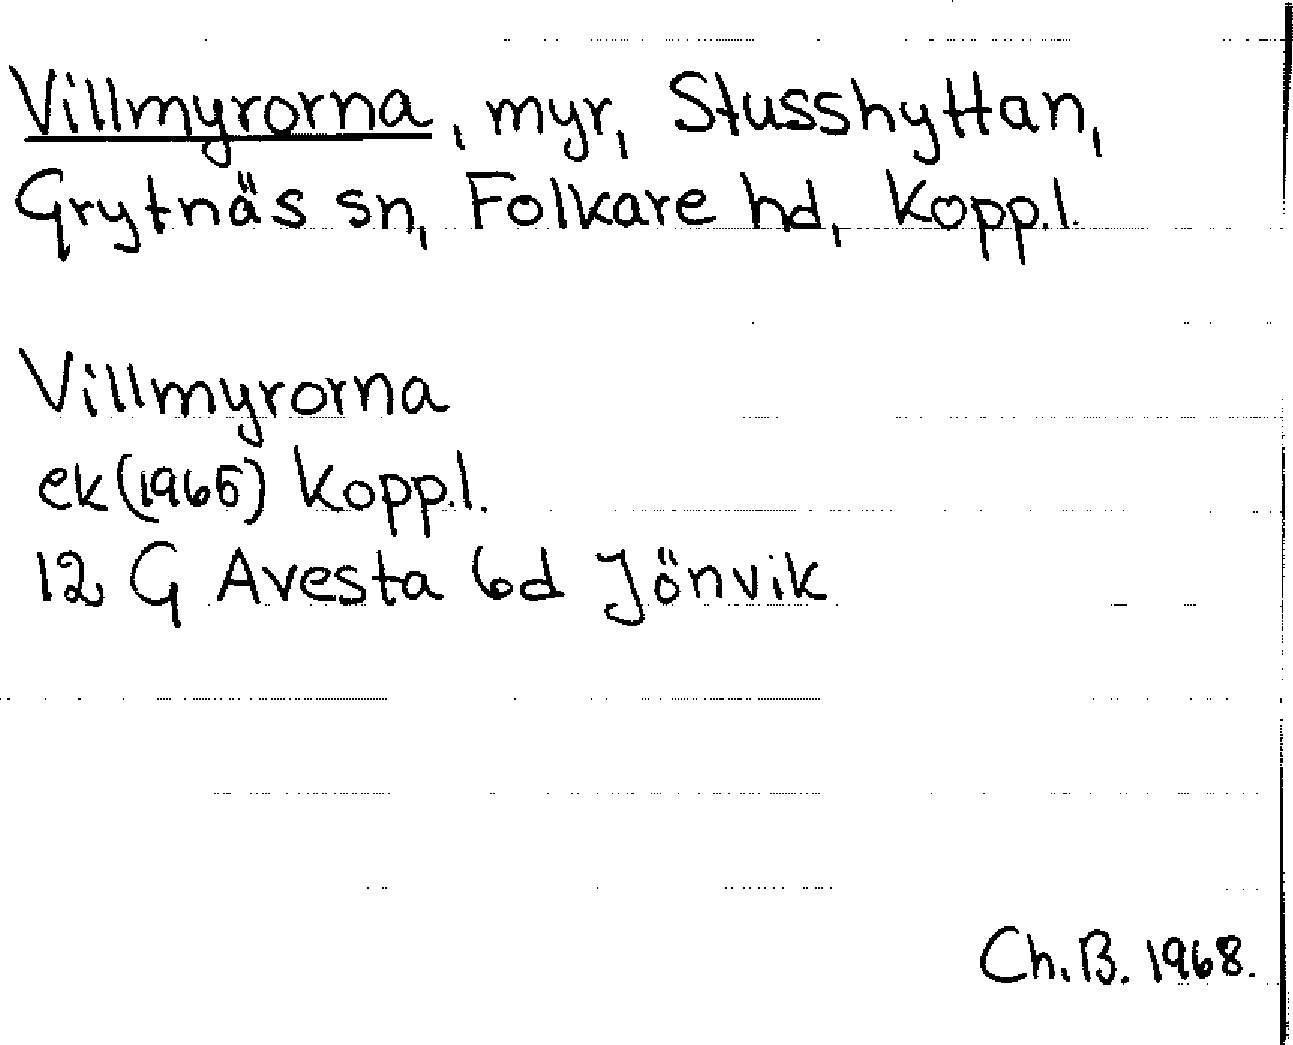 Villmyrorna, myr, Stusshyttan,
Grytnäs sn, Folkare hd, Kopp.l.
Villmyrorna
ek (1965) Kopp.l.
12 G Avesta 6d Jönvik
Ch. B. 1968.